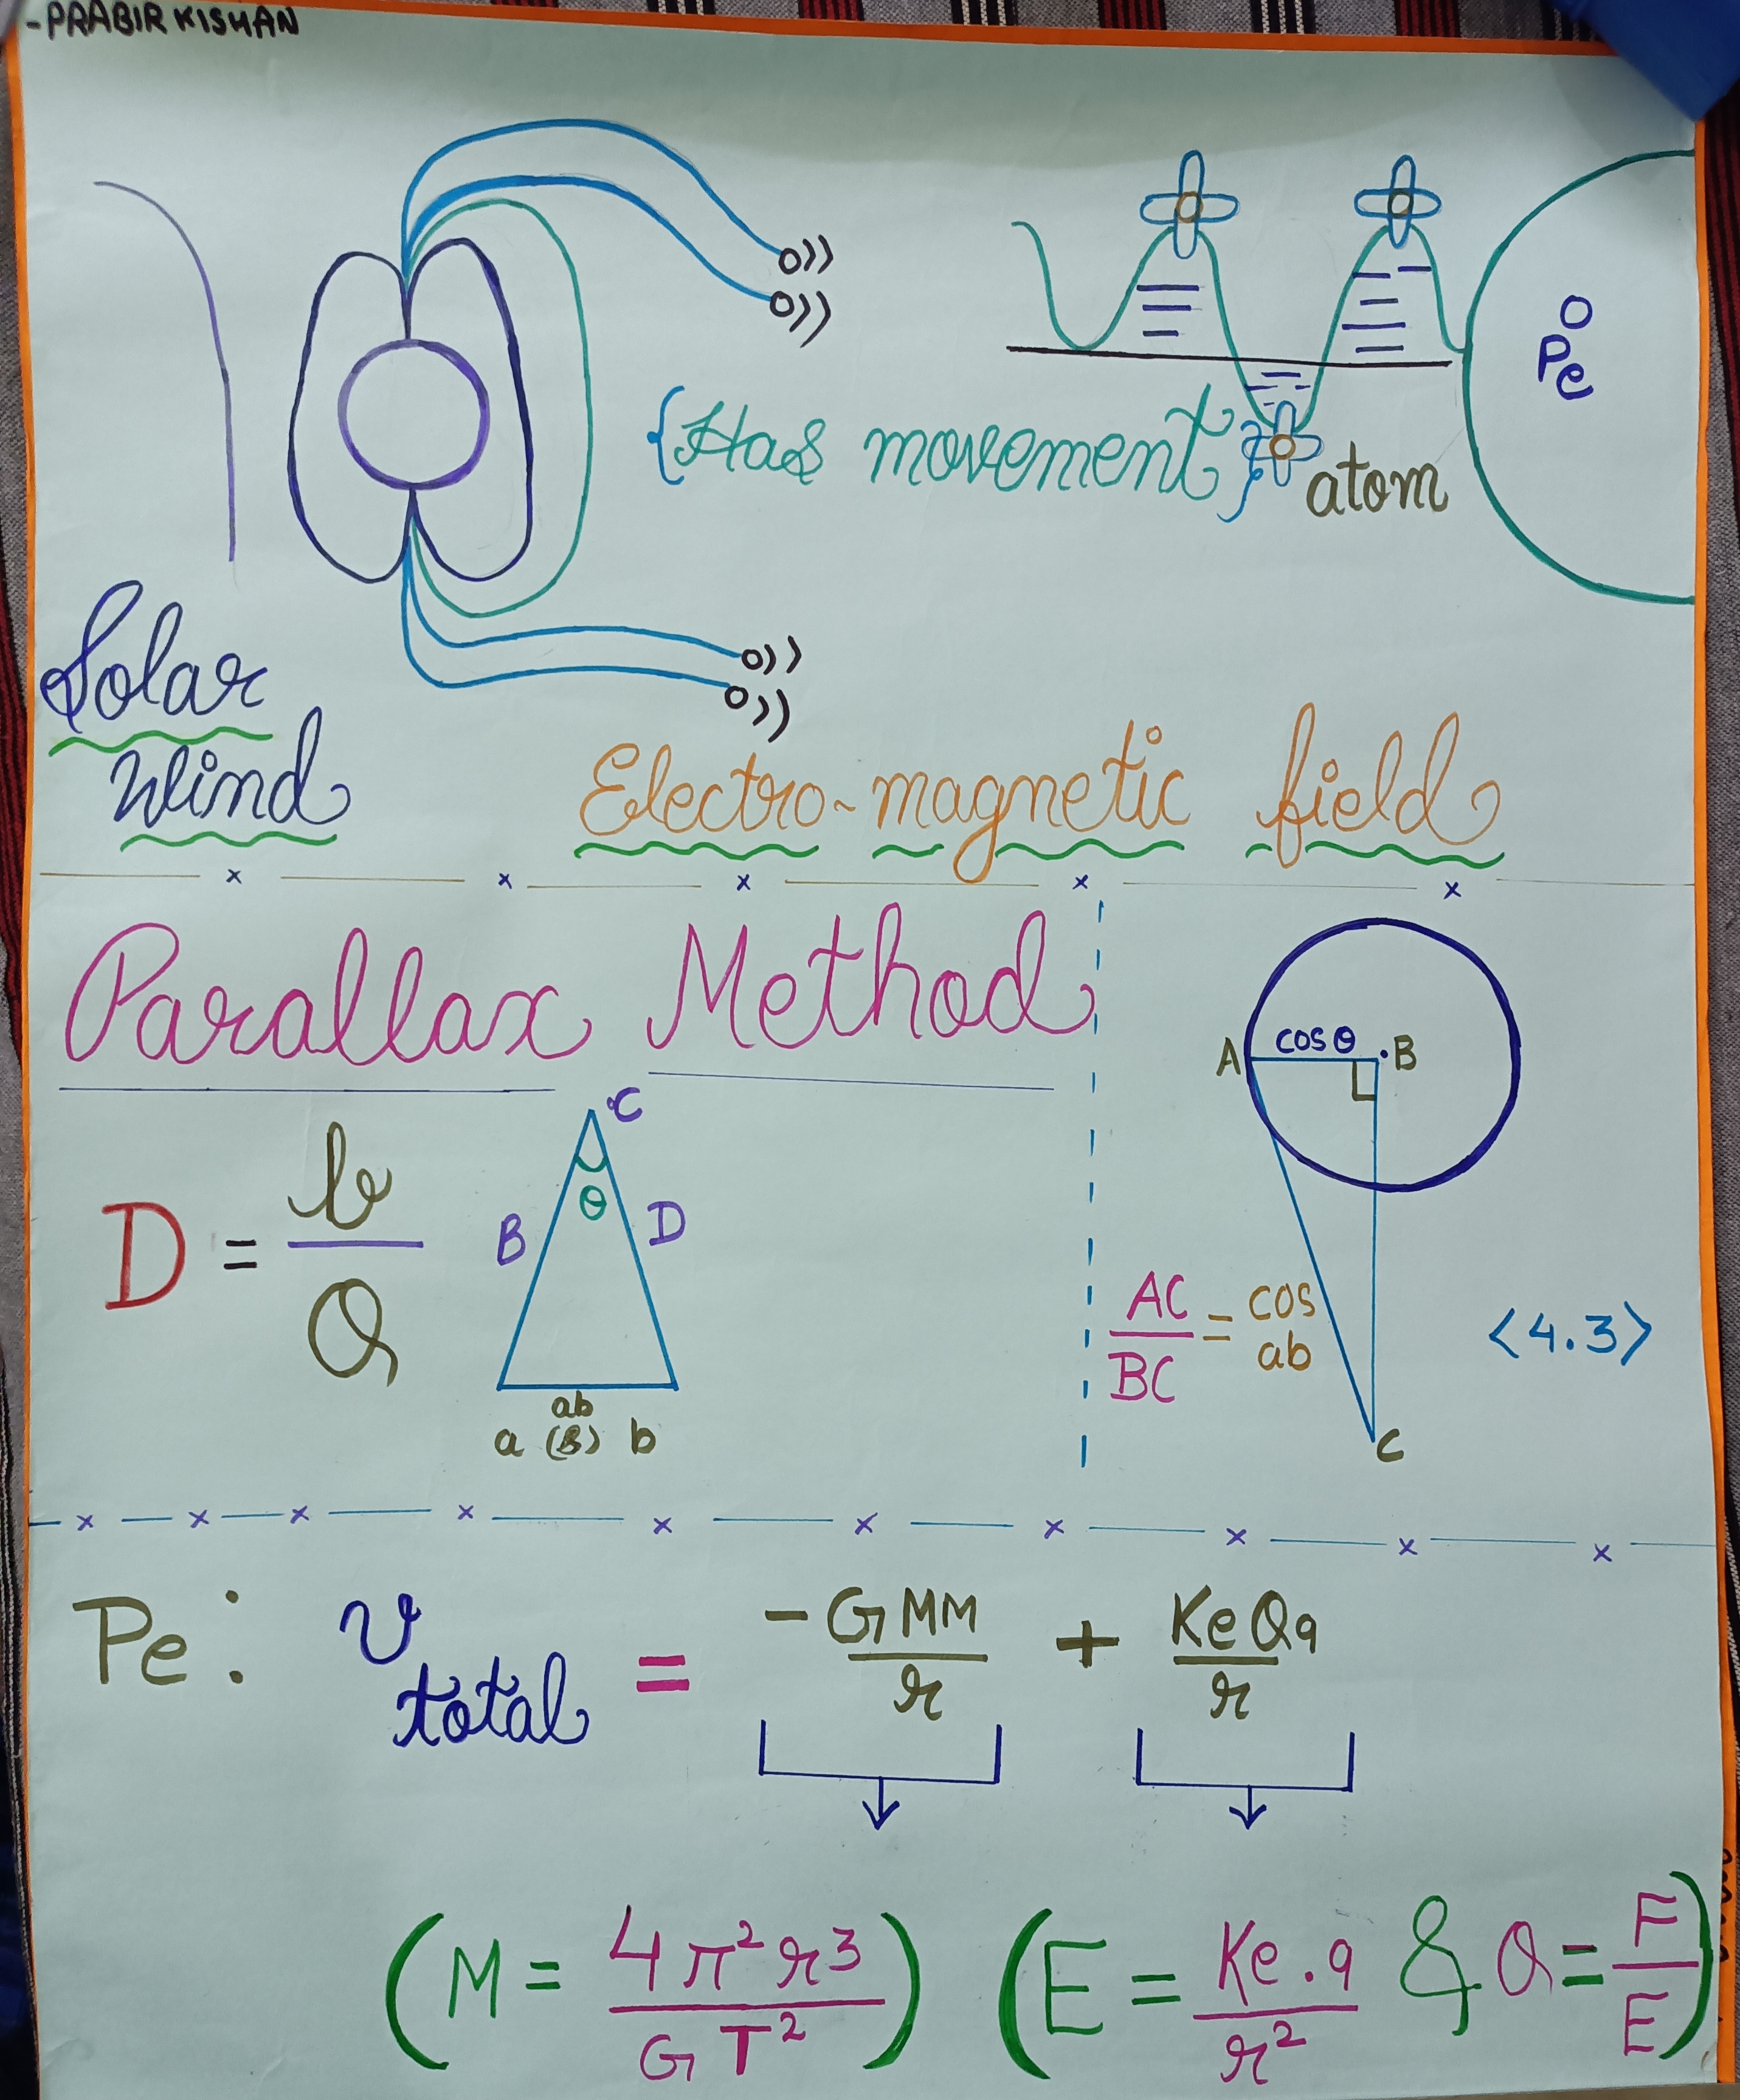 -PRABIR KISHAN
Pe
{Has movement}
atom
Solar
Wind
Electro-magnetic field
Parallax Method
D = b/Q
C
θ
B D
ab
a (B) b
A cosθ .B
AC/BC = cos/ab
<4.3>
C
Pe: v total = -GMM/r + KeQq/r
(M = 4π²r3/GT²) (E = Ke.q/r² & Q = F/E)